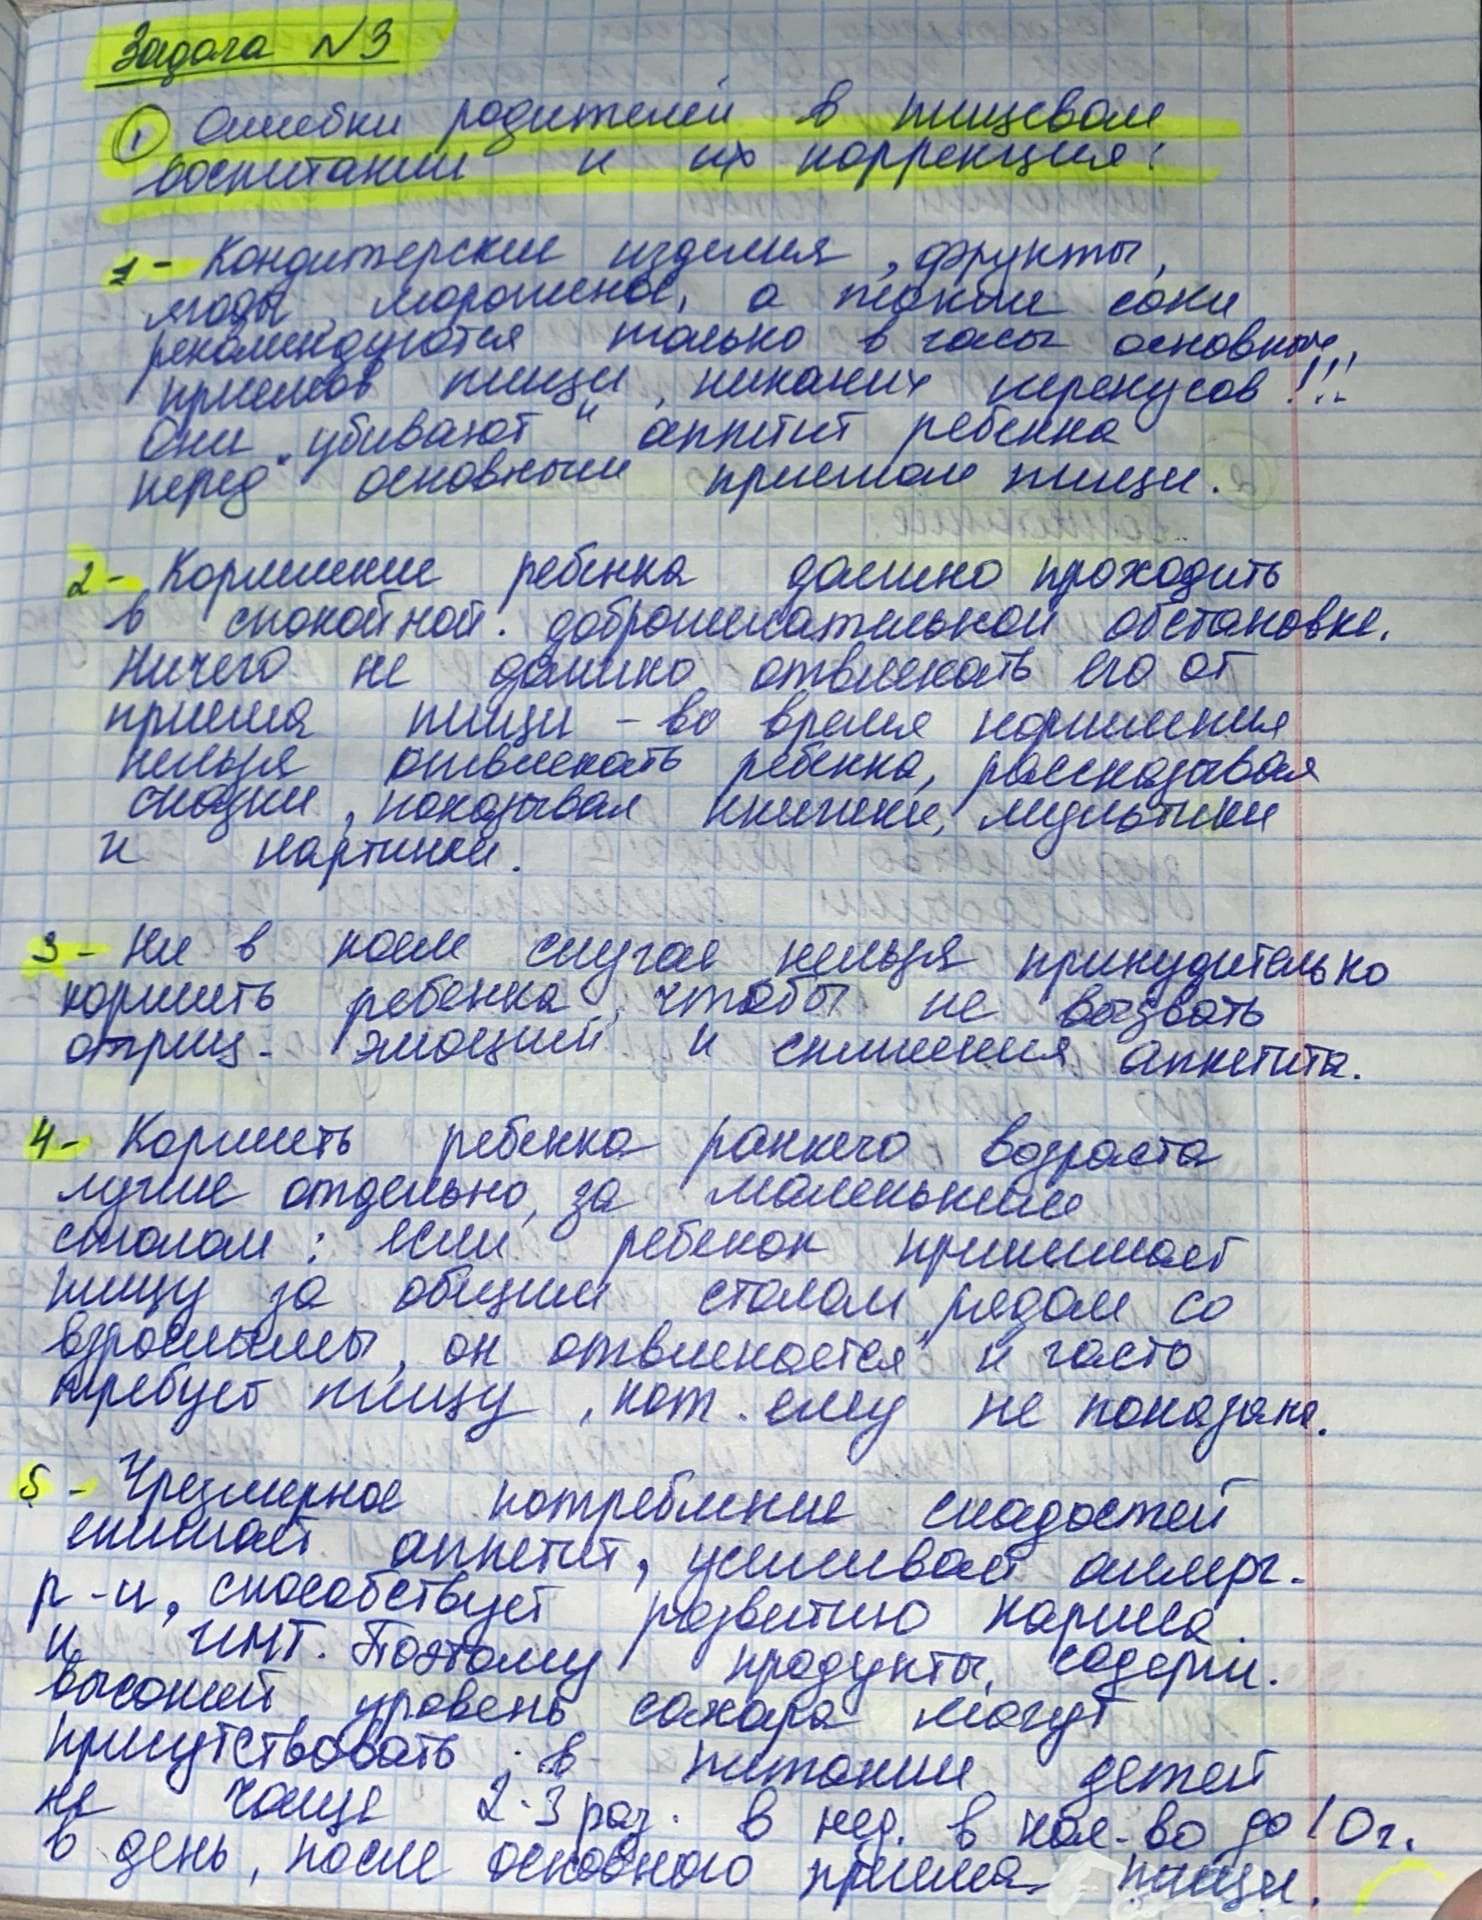 Задача №3
① Ошибки родителей в пищевом
воспитании и их коррекция:
1 - Кондитерские изделия, фрукты,
ягоды, мороженое, а также соки
рекомендуются только в часы основных
приемов пищи, никаких перекусов!!!
Они „убивают" аппетит ребенка
перед основным приемом пищи.
2 - Кормление ребенка должно проходить
в спокойной. доброжелательной обстановке.
Ничего не должно отвлекать его от
приема пищи - во время кормления
нельзя отвлекать ребенка, рассказывая
сказки, показывая книжки, мультики
и картинки.
3 - Ни в коем случае нельзя принудительно
кормить ребенка, чтобы не вызвать
отриц. эмоций и снижения аппетита.
4 - Кормить ребенка раннего возраста
лучше отдельно, за маленьким
столом; если ребенок принимает
пищу за общим столом, рядом со
взрослыми, он отвлекается и часто
требует пищу, кот. ему не показана.
5 - Чрезмерное потребление сладостей
снижает аппетит, усиливает аллерг.
р-и, способствует развитию кариеса
и ИМТ. Поэтому продукты, содерж.
высокий уровень сахара могут
присутствовать в питании детей
не чаще 2-3 раз. в нед. в кол-во до 10г.
в день, после основного приема пищи.